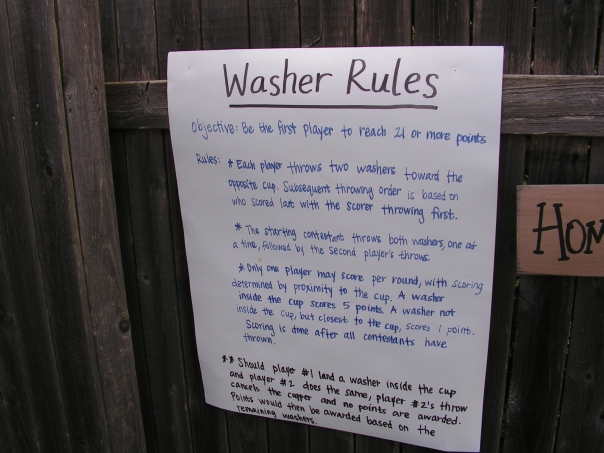 Washer Rules
Objective: Be the first player to reach 21 or more points
Rules: * Each player throws two washers toward the
opposite cup. Subsequent throwing order is based on
who scored last with the scorer throwing first.
* The starting contestant throws both washers, one at
a time, followed by the second player's throws.
* Only one player may score per round, with scoring
determined by proximity to the cup. A washer
inside the cup scores 5 points. A washer not
inside the cup, but closest to the cup, scores 1 point.
Scoring is done after all contestants have
thrown.
** Should player #1 land a washer inside the cup
and player #2 does the same, player #2's throw
cancels the cupper and no points are awarded.
Points would then be awarded based on the
remaining washers.
HOM